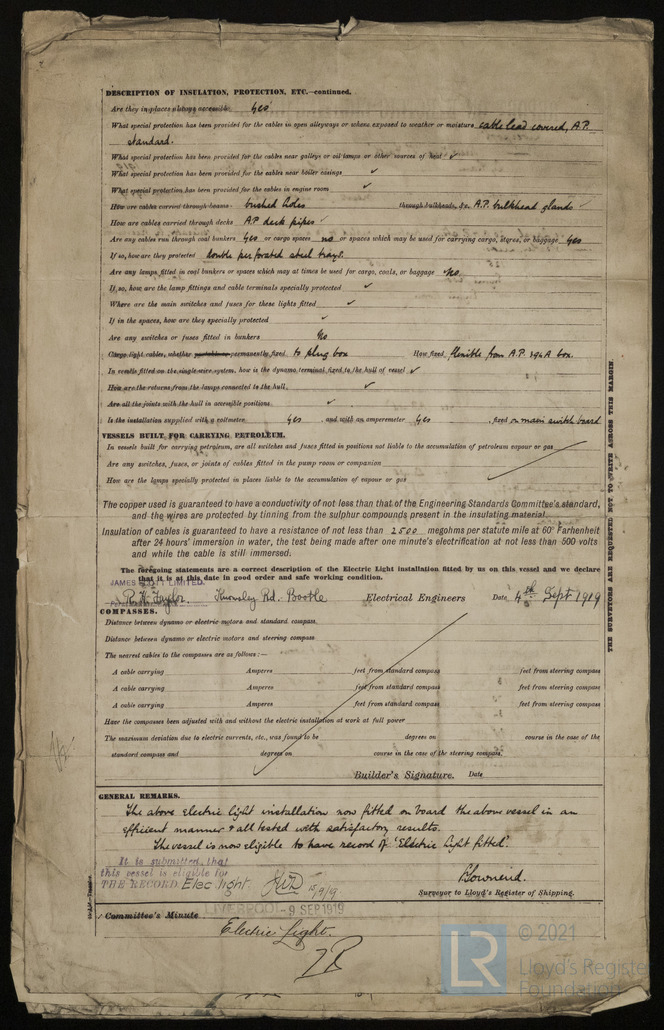 DESCRIPTION OF INSULATION, PROTECTION, ETC.—continued.
Are they in places always accessible Yes
What special protection has been provided for the cables in open alleyways or where exposed to weather or moisture cable lead covered, A.P.
standard.
What special protection has been provided for the cables near galleys or oil lamps or other sources of heat ✓
What special protection has been provided for the cables near boiler casings ✓
What special protection has been provided for the cables in engine room ✓
How are cables carried through beams bushed holes through bulkheads, &c. A.P. bulkhead glands ✓
How are cables carried through decks A.P. deck pipes ✓
Are any cables run through coal bunkers Yes or cargo spaces no or spaces which may be used for carrying cargo, stores, or baggage yes
If so, how are they protected double perforated steel trays.
Are any lamps fitted in coal bunkers or spaces which may at times be used for cargo, coals, or baggage No.
If so, how are the lamp fittings and cable terminals specially protected ✓
Where are the main switches and fuses for these lights fitted ✓
If in the spaces, how are they specially protected ✓
Are any switches or fuses fitted in bunkers No
Cargo light cables, whether portable or permanently fixed to plug box How fixed flexible from A.P. 294A box.
In vessels fitted on the single wire system, how is the dynamo terminal fixed to the hull of vessel ✓
How are the returns from the lamps connected to the hull ✓
Are all the joints with the hull in accessible positions ✓
Is the installation supplied with a voltmeter Yes , and with an amperemeter Yes , fixed on main switch board
VESSELS BUILT FOR CARRYING PETROLEUM.
In vessels built for carrying petroleum, are all switches and fuses fitted in positions not liable to the accumulation of petroleum vapour or gas
Are any switches, fuses, or joints of cables fitted in the pump room or companion
How are the lamps specially protected in places liable to the accumulation of vapour or gas
The copper used is guaranteed to have a conductivity of not less than that of the Engineering Standards Committee's standard,
and the wires are protected by tinning from the sulphur compounds present in the insulating material.
Insulation of cables is guaranteed to have a resistance of not less than 2500 megohms per statute mile at 60° Farhenheit
after 24 hours' immersion in water, the test being made after one minute's electrification at not less than 500 volts
and while the cable is still immersed.
The foregoing statements are a correct description of the Electric Light installation fitted by us on this vessel and we declare
that it is at this date in good order and safe working condition.
JAMES SCOTT LIMITED.
R. H. Taylor. Knowsley Rd. Bootle Electrical Engineers Date 4th Sept 1919
COMPASSES.
Distance between dynamo or electric motors and standard compass
Distance between dynamo or electric motors and steering compass
The nearest cables to the compasses are as follows:—
A cable carrying Amperes feet from standard compass feet from steering compass
A cable carrying Amperes feet from standard compass feet from steering compass
A cable carrying Amperes feet from standard compass feet from steering compass
Have the compasses been adjusted with and without the electric installation at work at full power
The maximum deviation due to electric currents, etc., was found to be degrees on course in the case of the
standard compass and degrees on course in the case of the steering compass.
Builder's Signature. Date
THE SURVEYORS ARE REQUESTED NOT TO WRITE ACROSS THIS MARGIN.
GENERAL REMARKS.
The above electric light installation now fitted on board the above vessel in an
efficient manner & all tested with satisfactory results.
The vessel is now eligible to have record of 'Electric Light fitted'.
It is submitted that
this vessel is eligible for
THE RECORD. Elec light. 15/9/19
Surveyor to Lloyd's Register of Shipping.
LIVERPOOL - 9 SEP 1919
Committee's Minute
Electric Light.
LR
© 2021
Lloyd's Register
Foundation